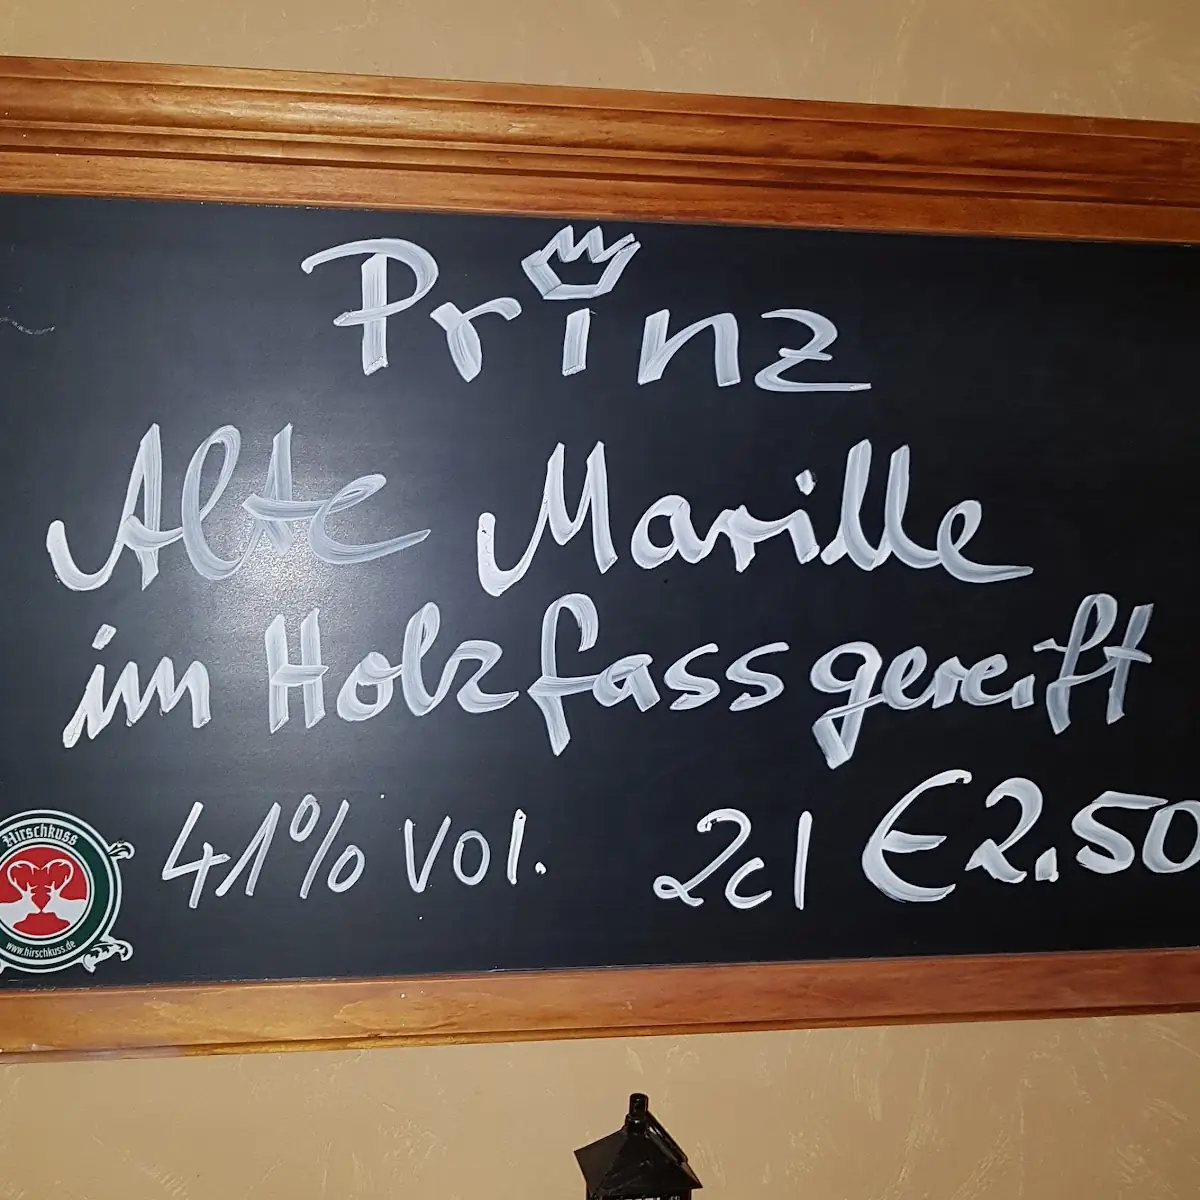 Prinz
Alte Marille
im Holzfassgereift
41% Vol. 2cl €2.50
Hirschkuss
www.hirschkuss.de